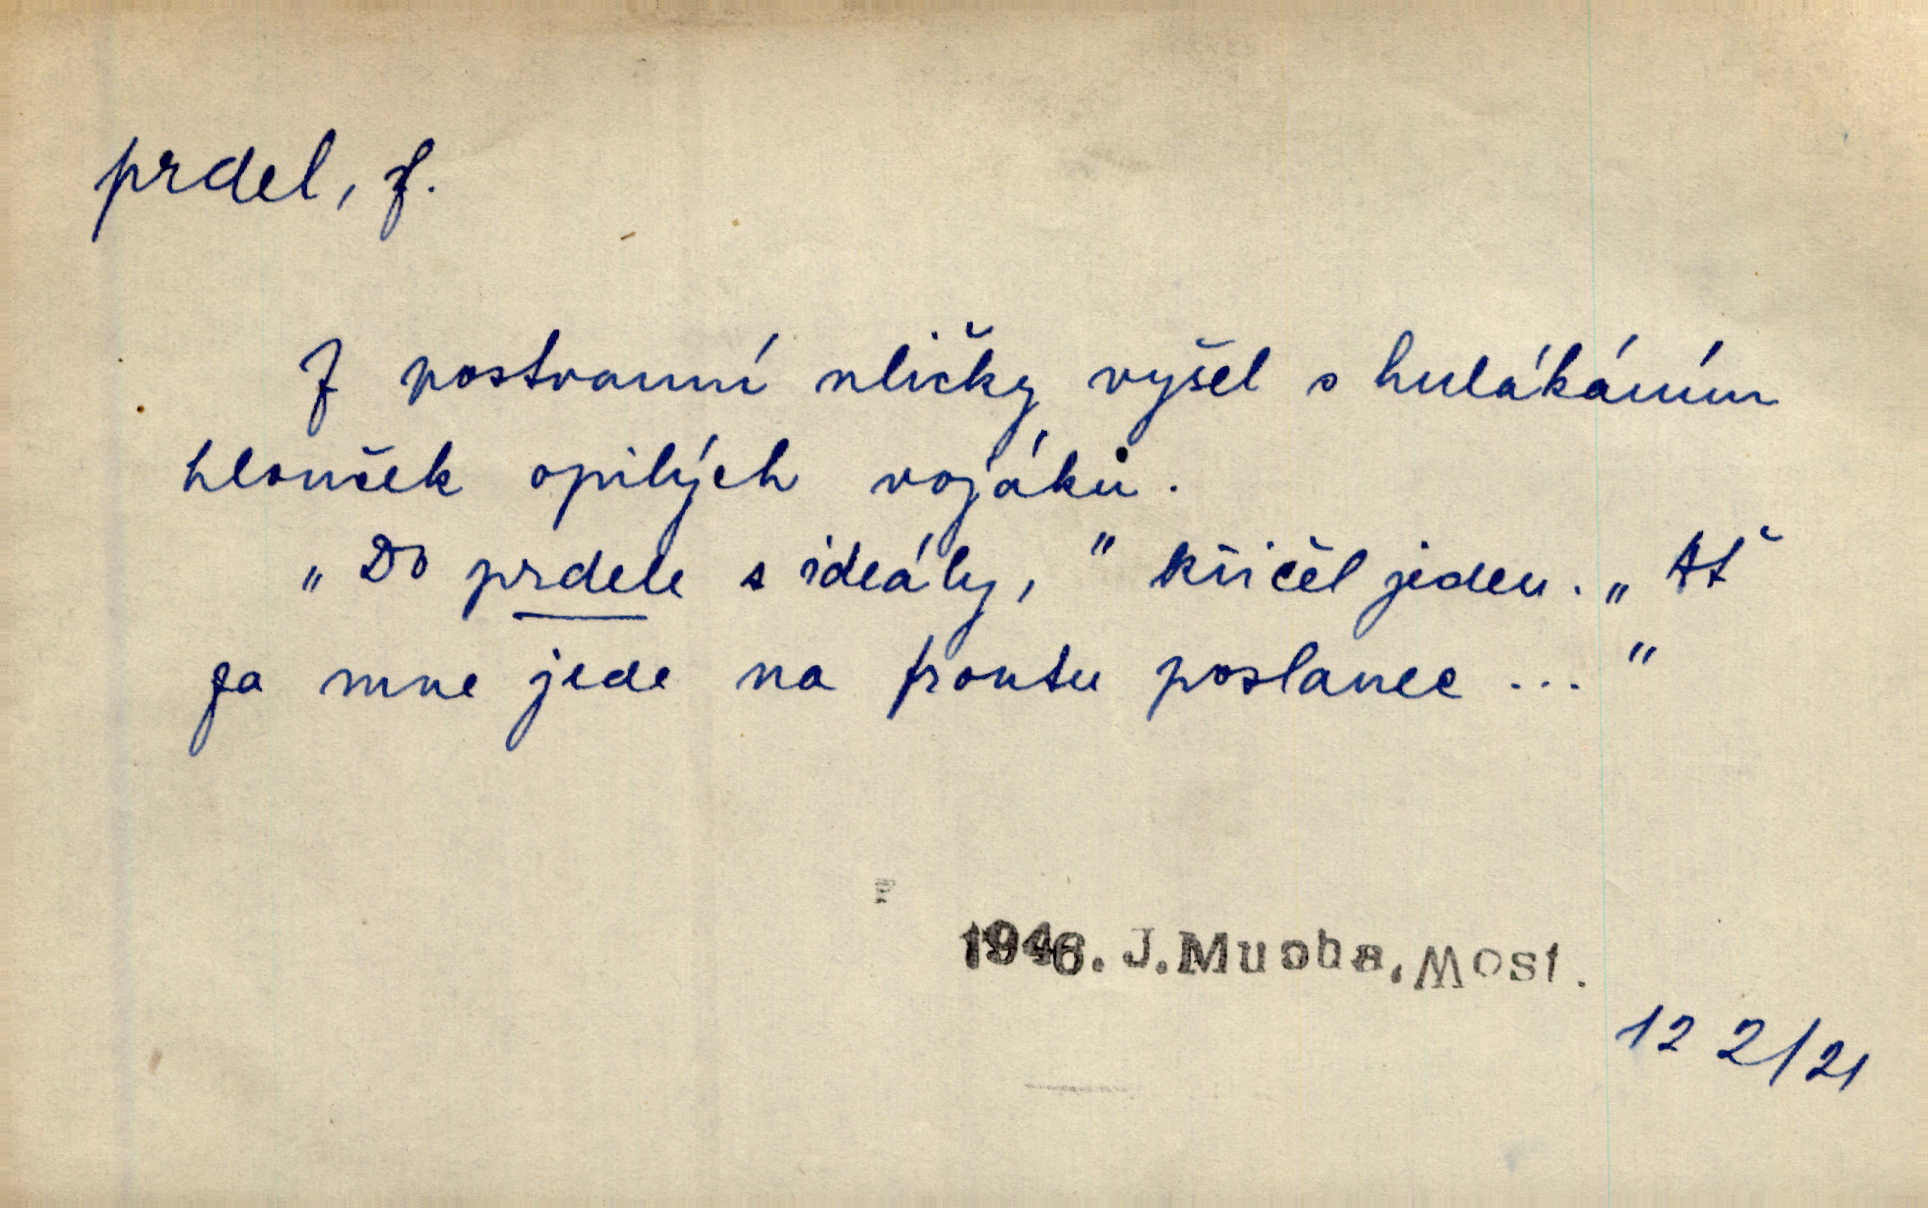 prdel, f.
Z postranní uličky vyšel s hulákáním
hlouček opilých vojáků.
„Do prdele s ideály," křičel jeden. „Ať
za mne jede na frontu poslanec ..."
1946. J.Mucha, Most.
122/21